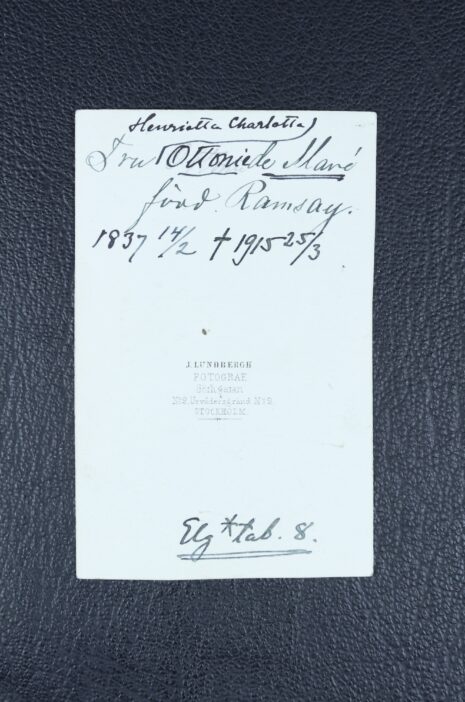 Henrietta Charlotta
Fru Ottonie de Maré
född Ramsay.
1837 14/2 † 1915 25/3
J. LUNDBERGH
FOTOGRAF
STOCKHOLM
Elg * tab. 8.